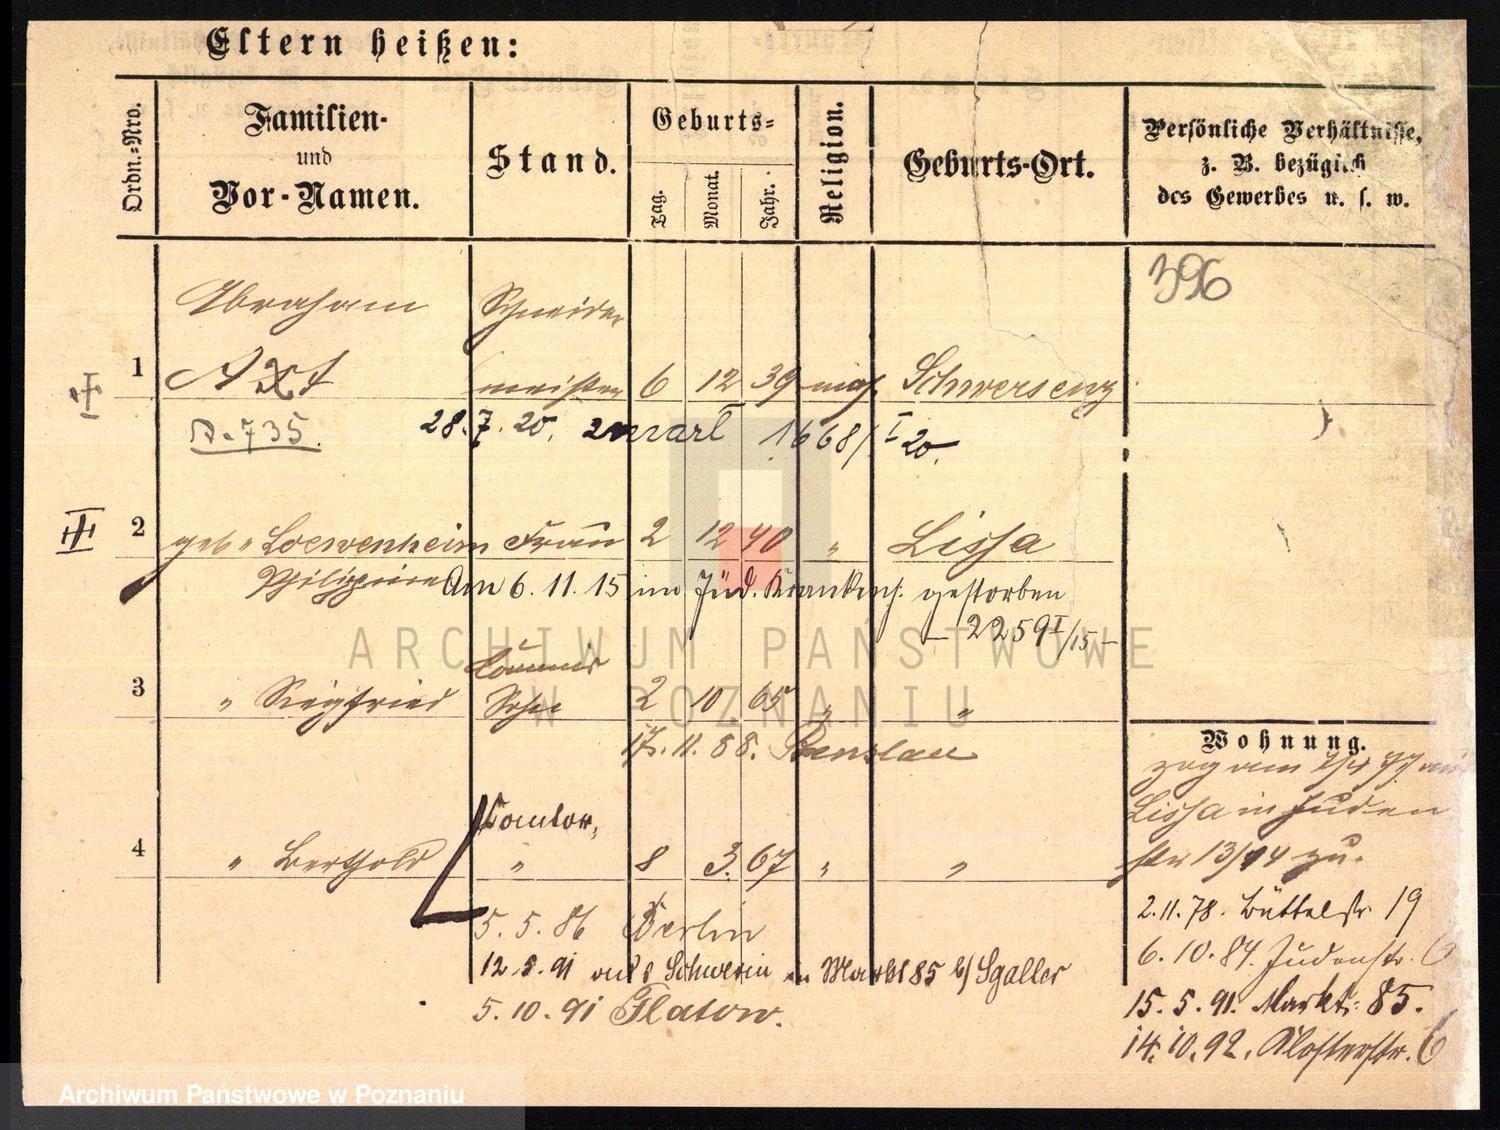 Eltern heißen:
Ordn.-Nro.
Familien-
und
Vor-Namen.
Stand.
Geburts-
Tag.
Monat.
Jahr.
Religion.
Geburts-Ort.
Persönliche Verhältnisse,
z. B. bezüglich
des Gewerbes u. s. w.
396
Abraham Schneider
1 Axt meister 6 12 39 mos. Schwersenz
28. 7. 20. 1668/I 20.
2 geb. Loewenheim Frau 2 12 40 " Lissa
Philippine Am 6. 11. 15 im Jüd. Krankenh. gestorben
- 2259 I/15 -
Commis
3 " Siegfried 2 10 65 " "
17. 11. 88.
Wohnung.
Lissa in Juden
str 13/14 zu.
Cantor,
4 " Berthold " 8 3. 67 " "
2. 11. 78. Büttelstr 19
5. 5. 86 Berlin
6. 10. 84. Judenstr.
12. 5. 91 aus Schwerin in Markt 85 b/ Sgaller
15. 5. 91. Markt: 85.
5. 10. 91 Flatow.
14. 10. 92. Klosterstr. 6
ARCHIWUM PAŃSTWOWE
W POZNANIU
Archiwum Państwowe w Poznaniu